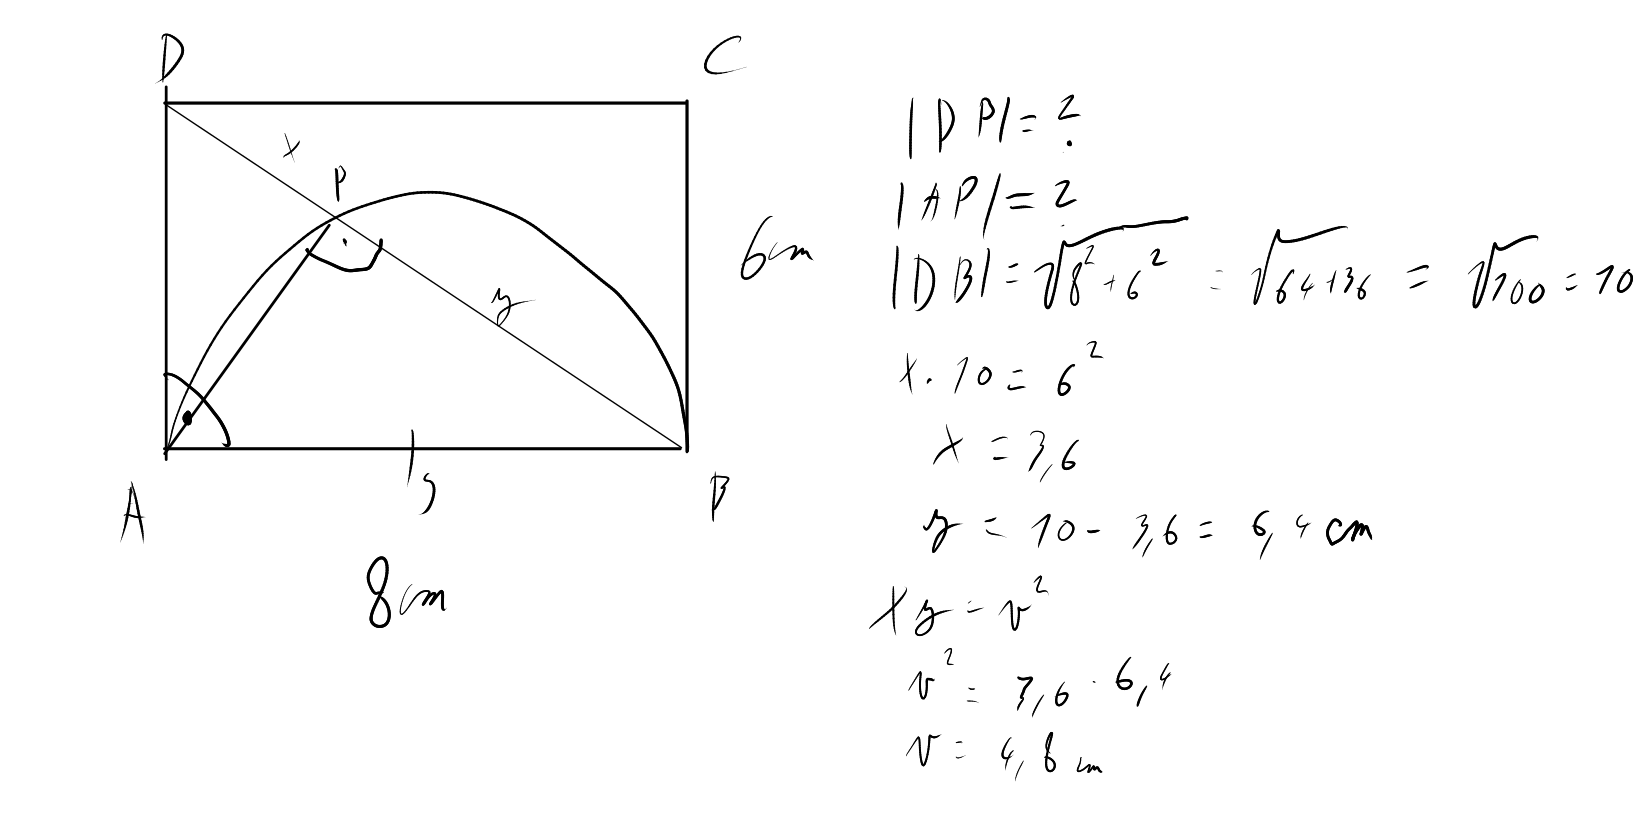 D
C
x
P
6cm
y
A
S
B
8cm
|DP| = ?
|AP| = ?
|DB| = √8² + 6² = √64+36 = √100 = 10
x · 10 = 6²
x = 3,6
y = 10 - 3,6 = 6,4 cm
xy = v²
v² = 3,6 · 6,4
v = 4,8 cm